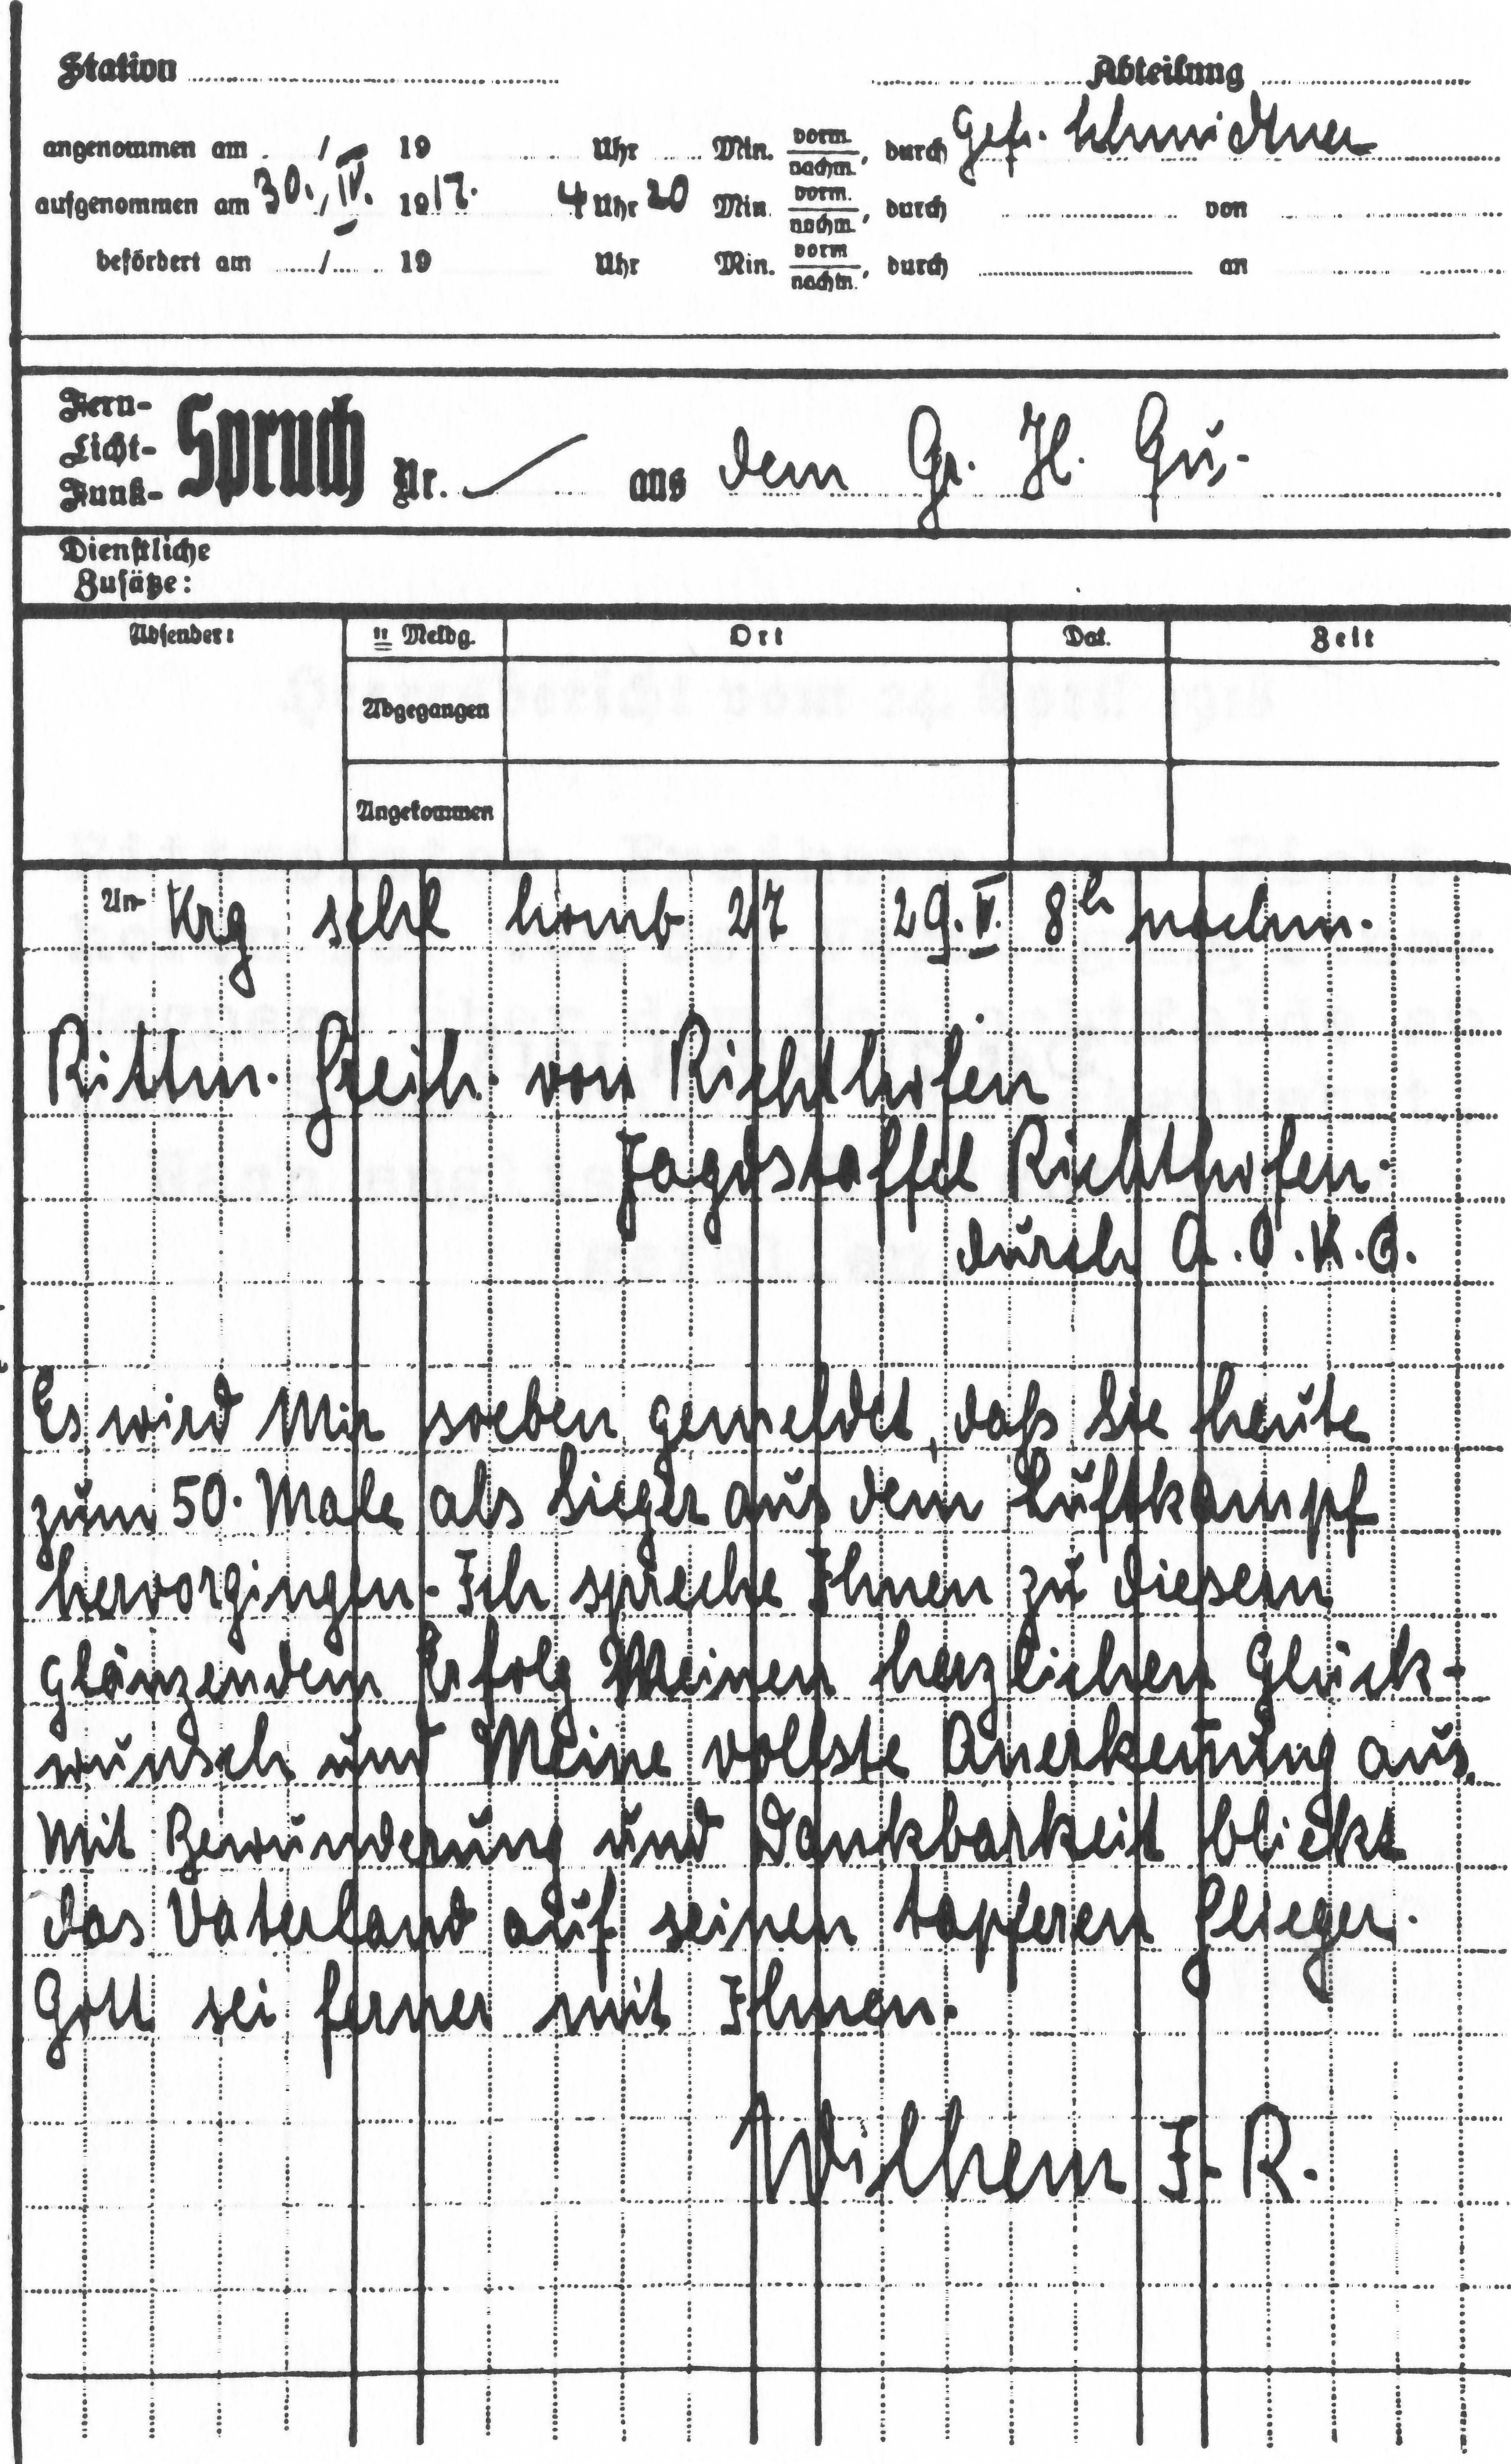 Station Abteilung
angenommen am / 19 Uhr Min. vorm./nachm., durch Gefr.
aufgenommen am 30./IV. 1917. 4 Uhr 20 Min. vorm./nachm., durch von
befördert am / 19 Uhr Min. vorm/nachm., durch an
Fern-
Licht-
Funk-
Spruch Nr. aus dem Gr. H. Qu.
Dienstliche
Zusätze:
Absender: "Meldg. Ort Dat. Zeit
Abgegangen
Angekommen
An Krg schl homb 27 29. IV. 8h nachm.
Rittm. Freih. von Richthofen
Jagdstaffel Richthofen.
durch A.O.K.6.
Es wird Mir soeben gemeldet, daß Sie heute
zum 50. Male als Sieger aus dem Luftkampf
hervorgingen. Ich spreche Ihnen zu diesem
glänzendem Erfolg Meinen herzlichen Glück-
wunsch und Meine vollste Anerkennung aus.
Mit Bewunderung und Dankbarkeit blickt
das Vaterland auf seinen tapferen Flieger.
Gott sei ferner mit Ihnen.
Wilhem I. R.